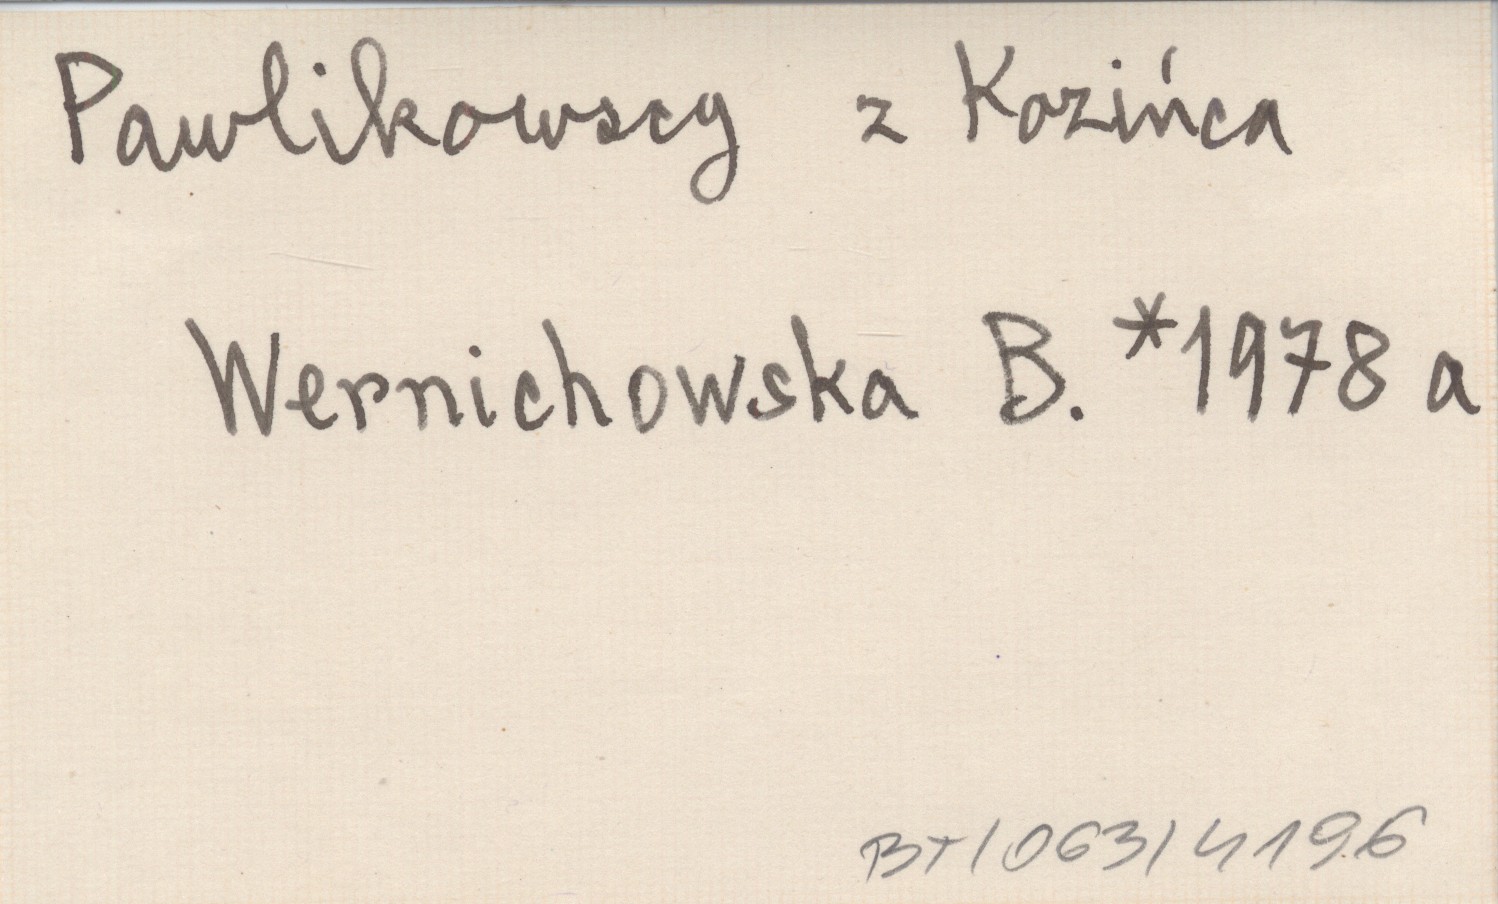 Pawlikowscy z Kozińca
Wernichowska B. *1978 a
BT/063/4196